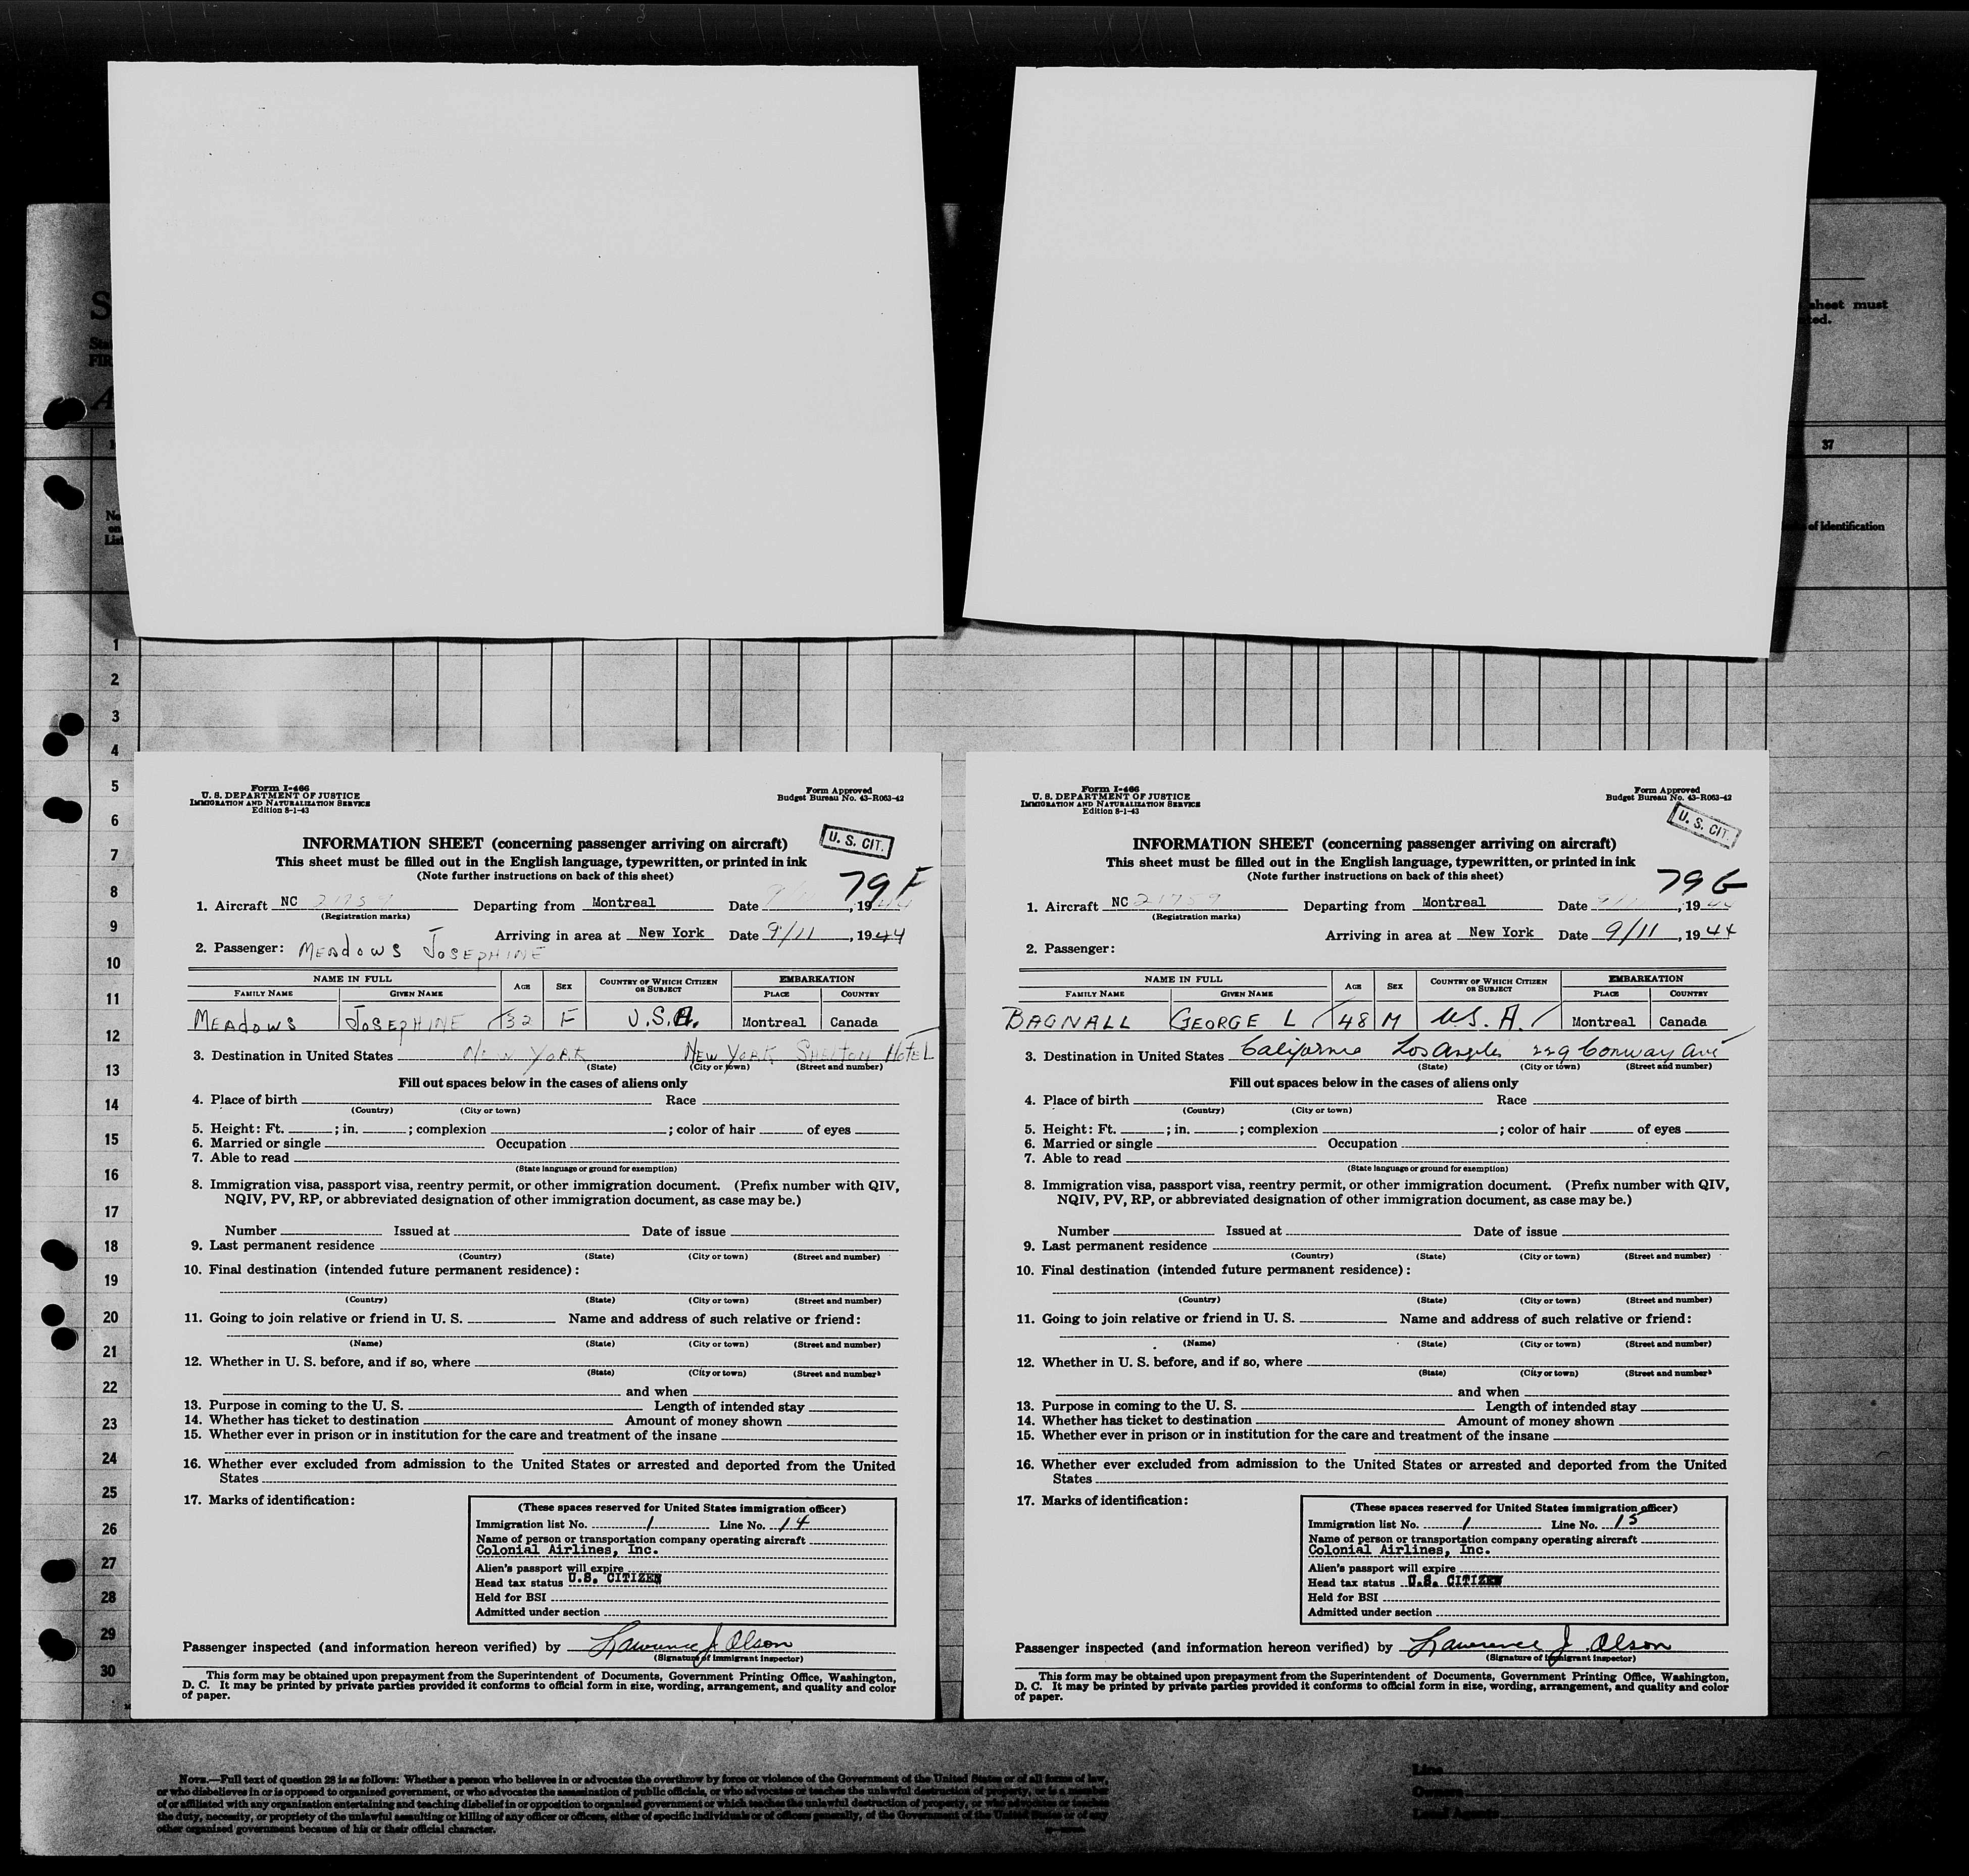 S
Stat
FIR
A
sheet must
ted.
37
No
on
List
of identification
1
2
3
4
5
6
7
8
9
10
11
12
13
14
15
16
17
18
19
20
21
22
23
24
25
26
27
28
29
30
Form I-466
U. S. DEPARTMENT OF JUSTICE
IMMIGRATION AND NATURALIZATION SERVICE
Edition 8-1-43
Form Approved
Budget Bureau No. 43-R063-42
U. S. CIT.
INFORMATION SHEET (concerning passenger arriving on aircraft)
This sheet must be filled out in the English language, typewritten, or printed in ink
(Note further instructions on back of this sheet)
79 F
1. Aircraft NC 21759 Departing from Montreal Date 9/11, 1944
(Registration marks)
Arriving in area at New York Date 9/11, 1944
2. Passenger: MEADOWS JOSEPHINE
NAME IN FULL AGE SEX COUNTRY OF WHICH CITIZEN OR SUBJECT EMBARKATION
FAMILY NAME GIVEN NAME PLACE COUNTRY
MEADOWS JOSEPHINE 32 F U.S.A. Montreal Canada
3. Destination in United States NEW YORK NEW YORK SHELTON HOTEL
(State) (City or town) (Street and number)
Fill out spaces below in the cases of aliens only
4. Place of birth Race
(Country) (City or town)
5. Height: Ft. ; in. ; complexion ; color of hair of eyes
6. Married or single Occupation
7. Able to read
(State language or ground for exemption)
8. Immigration visa, passport visa, reentry permit, or other immigration document. (Prefix number with QIV,
NQIV, PV, RP, or abbreviated designation of other immigration document, as case may be.)
Number Issued at Date of issue
9. Last permanent residence
(Country) (State) (City or town) (Street and number)
10. Final destination (intended future permanent residence):
(Country) (State) (City or town) (Street and number)
11. Going to join relative or friend in U. S. Name and address of such relative or friend:
(Name) (State) (City or town) (Street and number)
12. Whether in U. S. before, and if so, where
(State) (City or town) (Street and number)
and when
13. Purpose in coming to the U. S. Length of intended stay
14. Whether has ticket to destination Amount of money shown
15. Whether ever in prison or in institution for the care and treatment of the insane
16. Whether ever excluded from admission to the United States or arrested and deported from the United
States
17. Marks of identification:
(These spaces reserved for United States immigration officer)
Immigration list No. 1 Line No. 14
Name of person or transportation company operating aircraft
Colonial Airlines, Inc.
Alien's passport will expire
Head tax status U.S. CITIZEN
Held for BSI
Admitted under section
Passenger inspected (and information hereon verified) by Lawrence J. Olson
(Signature of immigrant inspector)
This form may be obtained upon prepayment from the Superintendent of Documents, Government Printing Office, Washington,
D. C. It may be printed by private parties provided it conforms to official form in size, wording, arrangement, and quality and color
of paper.
Form I-466
U. S. DEPARTMENT OF JUSTICE
IMMIGRATION AND NATURALIZATION SERVICE
Edition 8-1-43
Form Approved
Budget Bureau No. 43-R063-42
U. S. CIT.
INFORMATION SHEET (concerning passenger arriving on aircraft)
This sheet must be filled out in the English language, typewritten, or printed in ink
(Note further instructions on back of this sheet)
79 G
1. Aircraft NC 21759 Departing from Montreal Date 9/11, 1944
(Registration marks)
Arriving in area at New York Date 9/11, 1944
2. Passenger:
NAME IN FULL AGE SEX COUNTRY OF WHICH CITIZEN OR SUBJECT EMBARKATION
FAMILY NAME GIVEN NAME PLACE COUNTRY
BAGNALL GEORGE L 48 M U.S.A. Montreal Canada
3. Destination in United States California Los Angeles 229 Conway Ave
(State) (City or town) (Street and number)
Fill out spaces below in the cases of aliens only
4. Place of birth Race
(Country) (City or town)
5. Height: Ft. ; in. ; complexion ; color of hair of eyes
6. Married or single Occupation
7. Able to read
(State language or ground for exemption)
8. Immigration visa, passport visa, reentry permit, or other immigration document. (Prefix number with QIV,
NQIV, PV, RP, or abbreviated designation of other immigration document, as case may be.)
Number Issued at Date of issue
9. Last permanent residence
(Country) (State) (City or town) (Street and number)
10. Final destination (intended future permanent residence):
(Country) (State) (City or town) (Street and number)
11. Going to join relative or friend in U. S. Name and address of such relative or friend:
(Name) (State) (City or town) (Street and number)
12. Whether in U. S. before, and if so, where
(State) (City or town) (Street and number)
and when
13. Purpose in coming to the U. S. Length of intended stay
14. Whether has ticket to destination Amount of money shown
15. Whether ever in prison or in institution for the care and treatment of the insane
16. Whether ever excluded from admission to the United States or arrested and deported from the United
States
17. Marks of identification:
(These spaces reserved for United States immigration officer)
Immigration list No. 1 Line No. 15
Name of person or transportation company operating aircraft
Colonial Airlines, Inc.
Alien's passport will expire
Head tax status U.S. CITIZEN
Held for BSI
Admitted under section
Passenger inspected (and information hereon verified) by Lawrence J. Olson
(Signature of immigrant inspector)
This form may be obtained upon prepayment from the Superintendent of Documents, Government Printing Office, Washington,
D. C. It may be printed by private parties provided it conforms to official form in size, wording, arrangement, and quality and color
of paper.
NOTE.—Full text of question 28 is as follows: Whether a person who believes in or advocates the overthrow by force or violence of the Government of the United States or of all forms of law,
or who disbelieves in or is opposed to organized government, or who advocates the assassination of public officials, or who advocates or teaches the unlawful destruction of property, or is a member
of or affiliated with any organization entertaining and teaching disbelief in or opposition to organized government or which teaches the unlawful destruction of property, or who advocates or teaches
the duty, necessity, or propriety of the unlawful assaulting or killing of any officer or officers, either of specific individuals or of officers generally, of the Government of the United States or of any
other organized government because of his or their official character.
Line
Owners
Local Agents